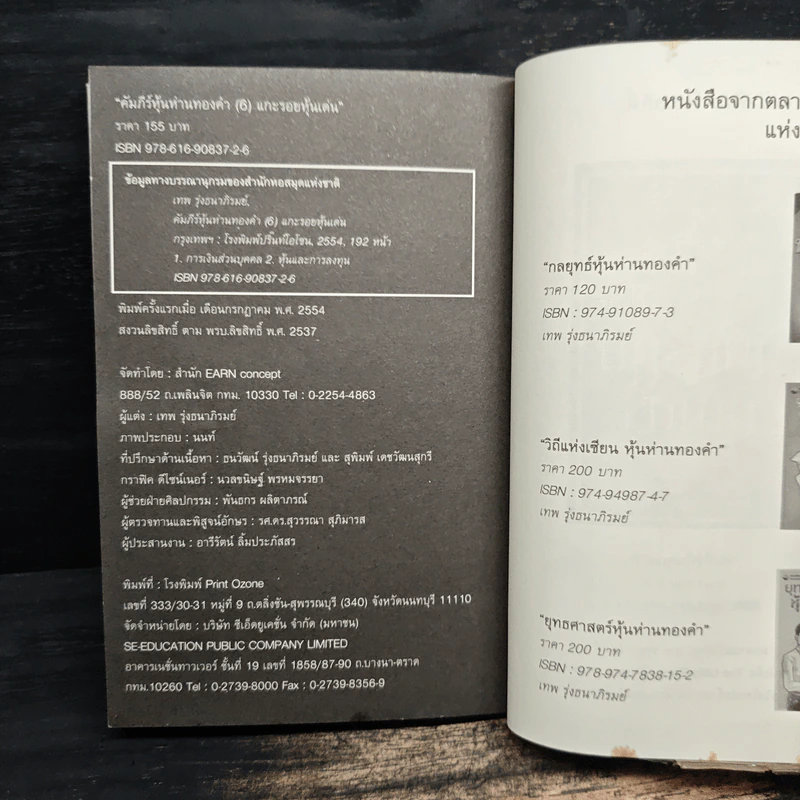 "คัมภีร์หุ้นห่านทองคำ (6) แกะรอยหุ้นเด่น"
ราคา 155 บาท
ISBN 978-616-90837-2-6
ข้อมูลทางบรรณานุกรมของสำนักหอสมุดแห่งชาติ
เทพ รุ่งธนาภิรมย์.
คัมภีร์หุ้นห่านทองคำ (6) แกะรอยหุ้นเด่น
กรุงเทพฯ : โรงพิมพ์ปริ้นท์โอโซน, 2554, 192 หน้า
1. การเงินส่วนบุคคล 2. หุ้นและการลงทุน
ISBN 978-616-90837-2-6
พิมพ์ครั้งแรกเมื่อ เดือนกรกฎาคม พ.ศ. 2554
สงวนลิขสิทธิ์ ตาม พรบ.ลิขสิทธิ์ พ.ศ. 2537
จัดทำโดย : สำนัก EARN concept
888/52 ถ.เพลินจิต กทม. 10330 Tel : 0-2254-4863
ผู้แต่ง : เทพ รุ่งธนาภิรมย์
ภาพประกอบ : นนท์
ที่ปรึกษาด้านเนื้อหา : ธนวัฒน์ รุ่งธนาภิรมย์ และ สุพิมพ์ เดชวัฒนสุกรี
กราฟิค ดีไซน์เนอร์ : นวลขนิษฐ์ พรหมจรรยา
ผู้ช่วยฝ่ายศิลปกรรม : พันธกร ผลิตาภรณ์
ผู้ตรวจทานและพิสูจน์อักษร : รศ.ดร.สุวรรณา สุภิมารส
ผู้ประสานงาน : อารีรัตน์ ลิ้มประภัสสร
พิมพ์ที่ : โรงพิมพ์ Print Ozone
เลขที่ 333/30-31 หมู่ที่ 9 ถ.ตลิ่งชัน-สุพรรณบุรี (340) จังหวัดนนทบุรี 11110
จัดจำหน่ายโดย : บริษัท ซีเอ็ดยูเคชั่น จำกัด (มหาชน)
SE-EDUCATION PUBLIC COMPANY LIMITED
อาคารเนชั่นทาวเวอร์ ชั้นที่ 19 เลขที่ 1858/87-90 ถ.บางนา-ตราด
กทม.10260 Tel : 0-2739-8000 Fax : 0-2739-8356-9
หนังสือจากตลา
แห่ง
"กลยุทธ์หุ้นห่านทองคำ"
ราคา 120 บาท
ISBN : 974-91089-7-3
เทพ รุ่งธนาภิรมย์
"วิถีแห่งเซียน หุ้นห่านทองคำ"
ราคา 200 บาท
ISBN : 974-94987-4-7
เทพ รุ่งธนาภิรมย์
"ยุทธศาสตร์หุ้นห่านทองคำ"
ราคา 200 บาท
ISBN : 978-974-7838-15-2
เทพ รุ่งธนาภิรมย์